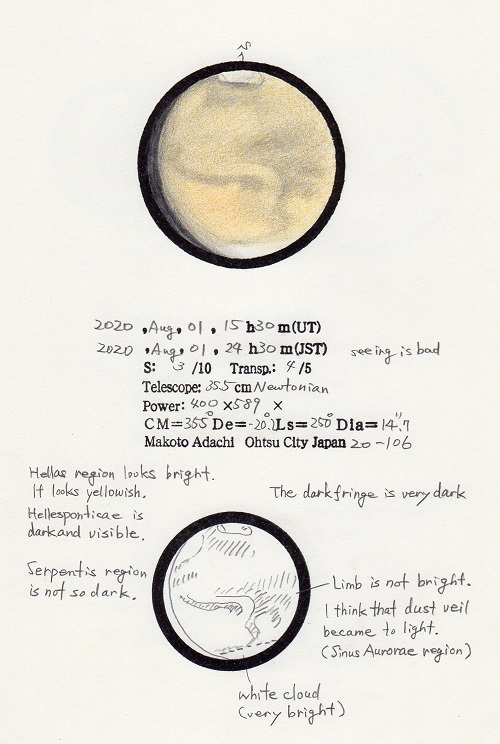 S
2020 , Aug, 01 , 15 h30 m(UT)
2020 , Aug, 01 , 24 h30 m(JST) seeing is bad
S: 3 /10 Transp.: 4 /5
Telescope: 35.5 cm Newtonian
Power: 400 ×589 ×
CM=355° De=-20.2 Ls=250° Dia=14".7
Makoto Adachi Ohtsu City Japan 20-106
Hellas region looks bright.
It looks yellowish.
The dark fringe is very dark
Hellesponticae is
dark and visible.
Serpentis region
is not so dark.
Limb is not bright.
I think that dust veil
became to light.
(Sinus Aurorae region)
white cloud
(very bright)